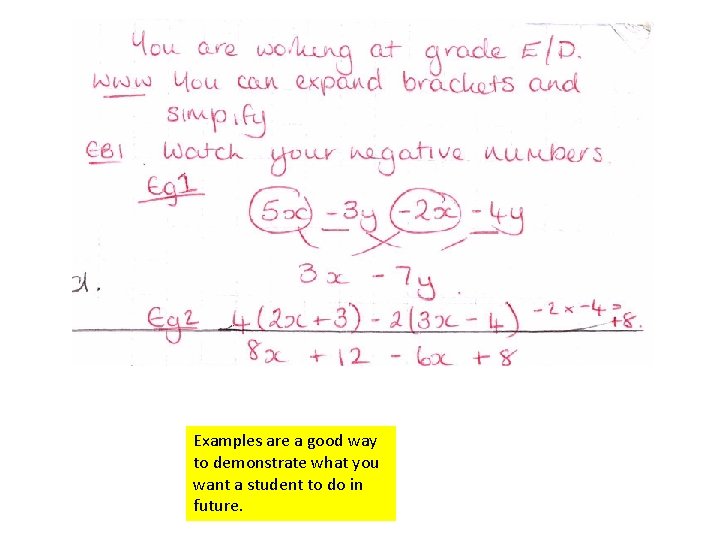 You are working at grade E/D.
WWW You can expand brackets and
simpify
EBI Watch your negative numbers
Eg1
5x - 3y - 2x - 4y
3x - 7y.
x.
Eg2 4(2x+3) - 2(3x - 4) -2 x -4 = +8.
8x + 12 - 6x + 8
Examples are a good way
to demonstrate what you
want a student to do in
future.